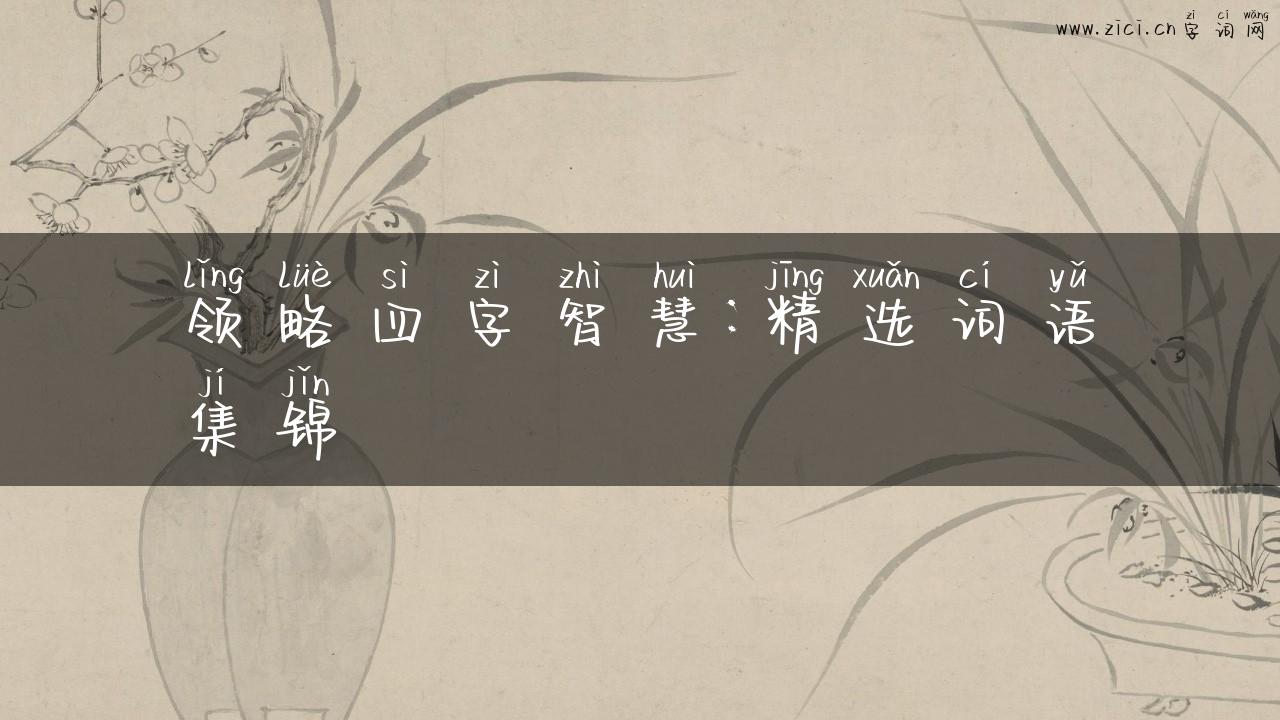 zì cí wǎng
www.zici.cn 字词网
lǐng lüè sì zì zhì huì jīng xuǎn cí yǔ
领略四字智慧：精选词语
jí jǐn
集锦